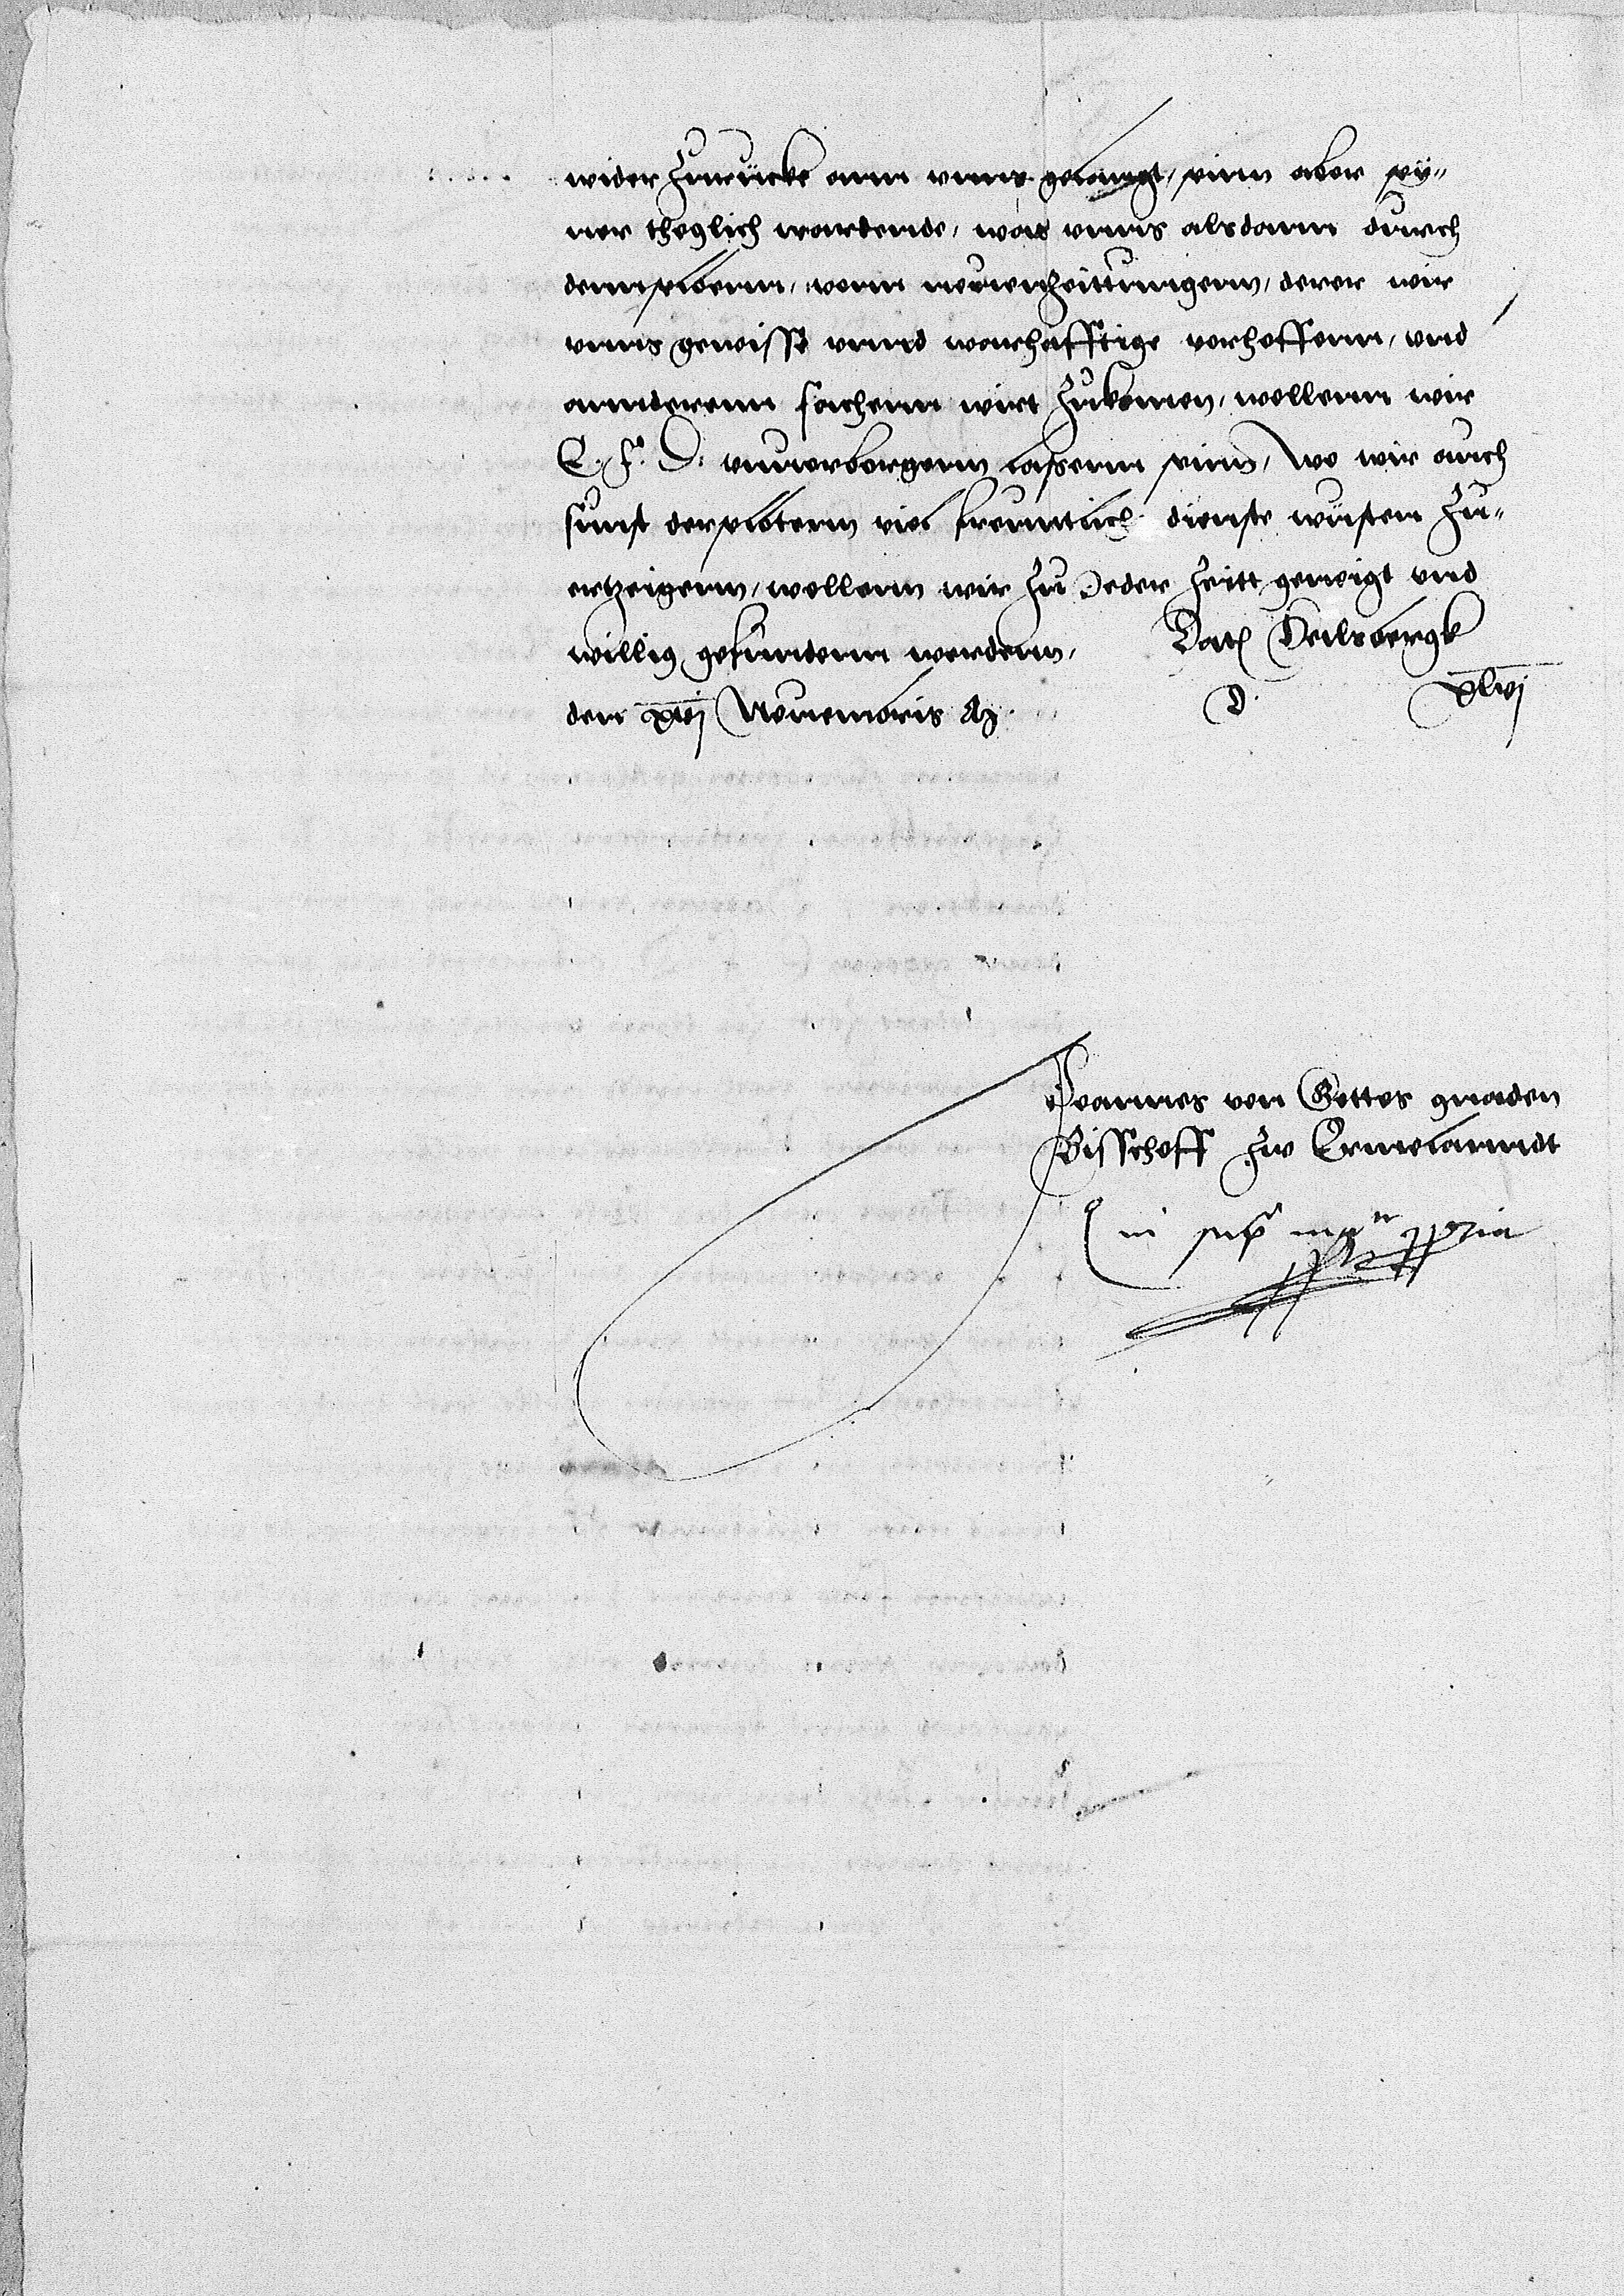 wider zurücke ann vnns gelangt, seinn aber sey-
ner theglich wardende, was vnns alsdann durch
dennselbenn, vonn neuenzeittungenn, derer wir
vnns gewisse vnnd warhafftige vorhoffenn, vnd
annderenn sachenn wirt zukomen, wollenn wir
E. F. D. vnuerborgenn lassenn seinn, Wo wir auch
sunst derselbtenn viel freuntlich dienste wusten zu-
ertzeigenn, wollenn wir zu Jeder zeitt geneigt vnd
willig gefunndenn werdenn, Dat Heilsbergk
den xvj Nouembris A D. xlvj
Joannes von Gottes gnaden
Bisschoff zw Ermelanndt